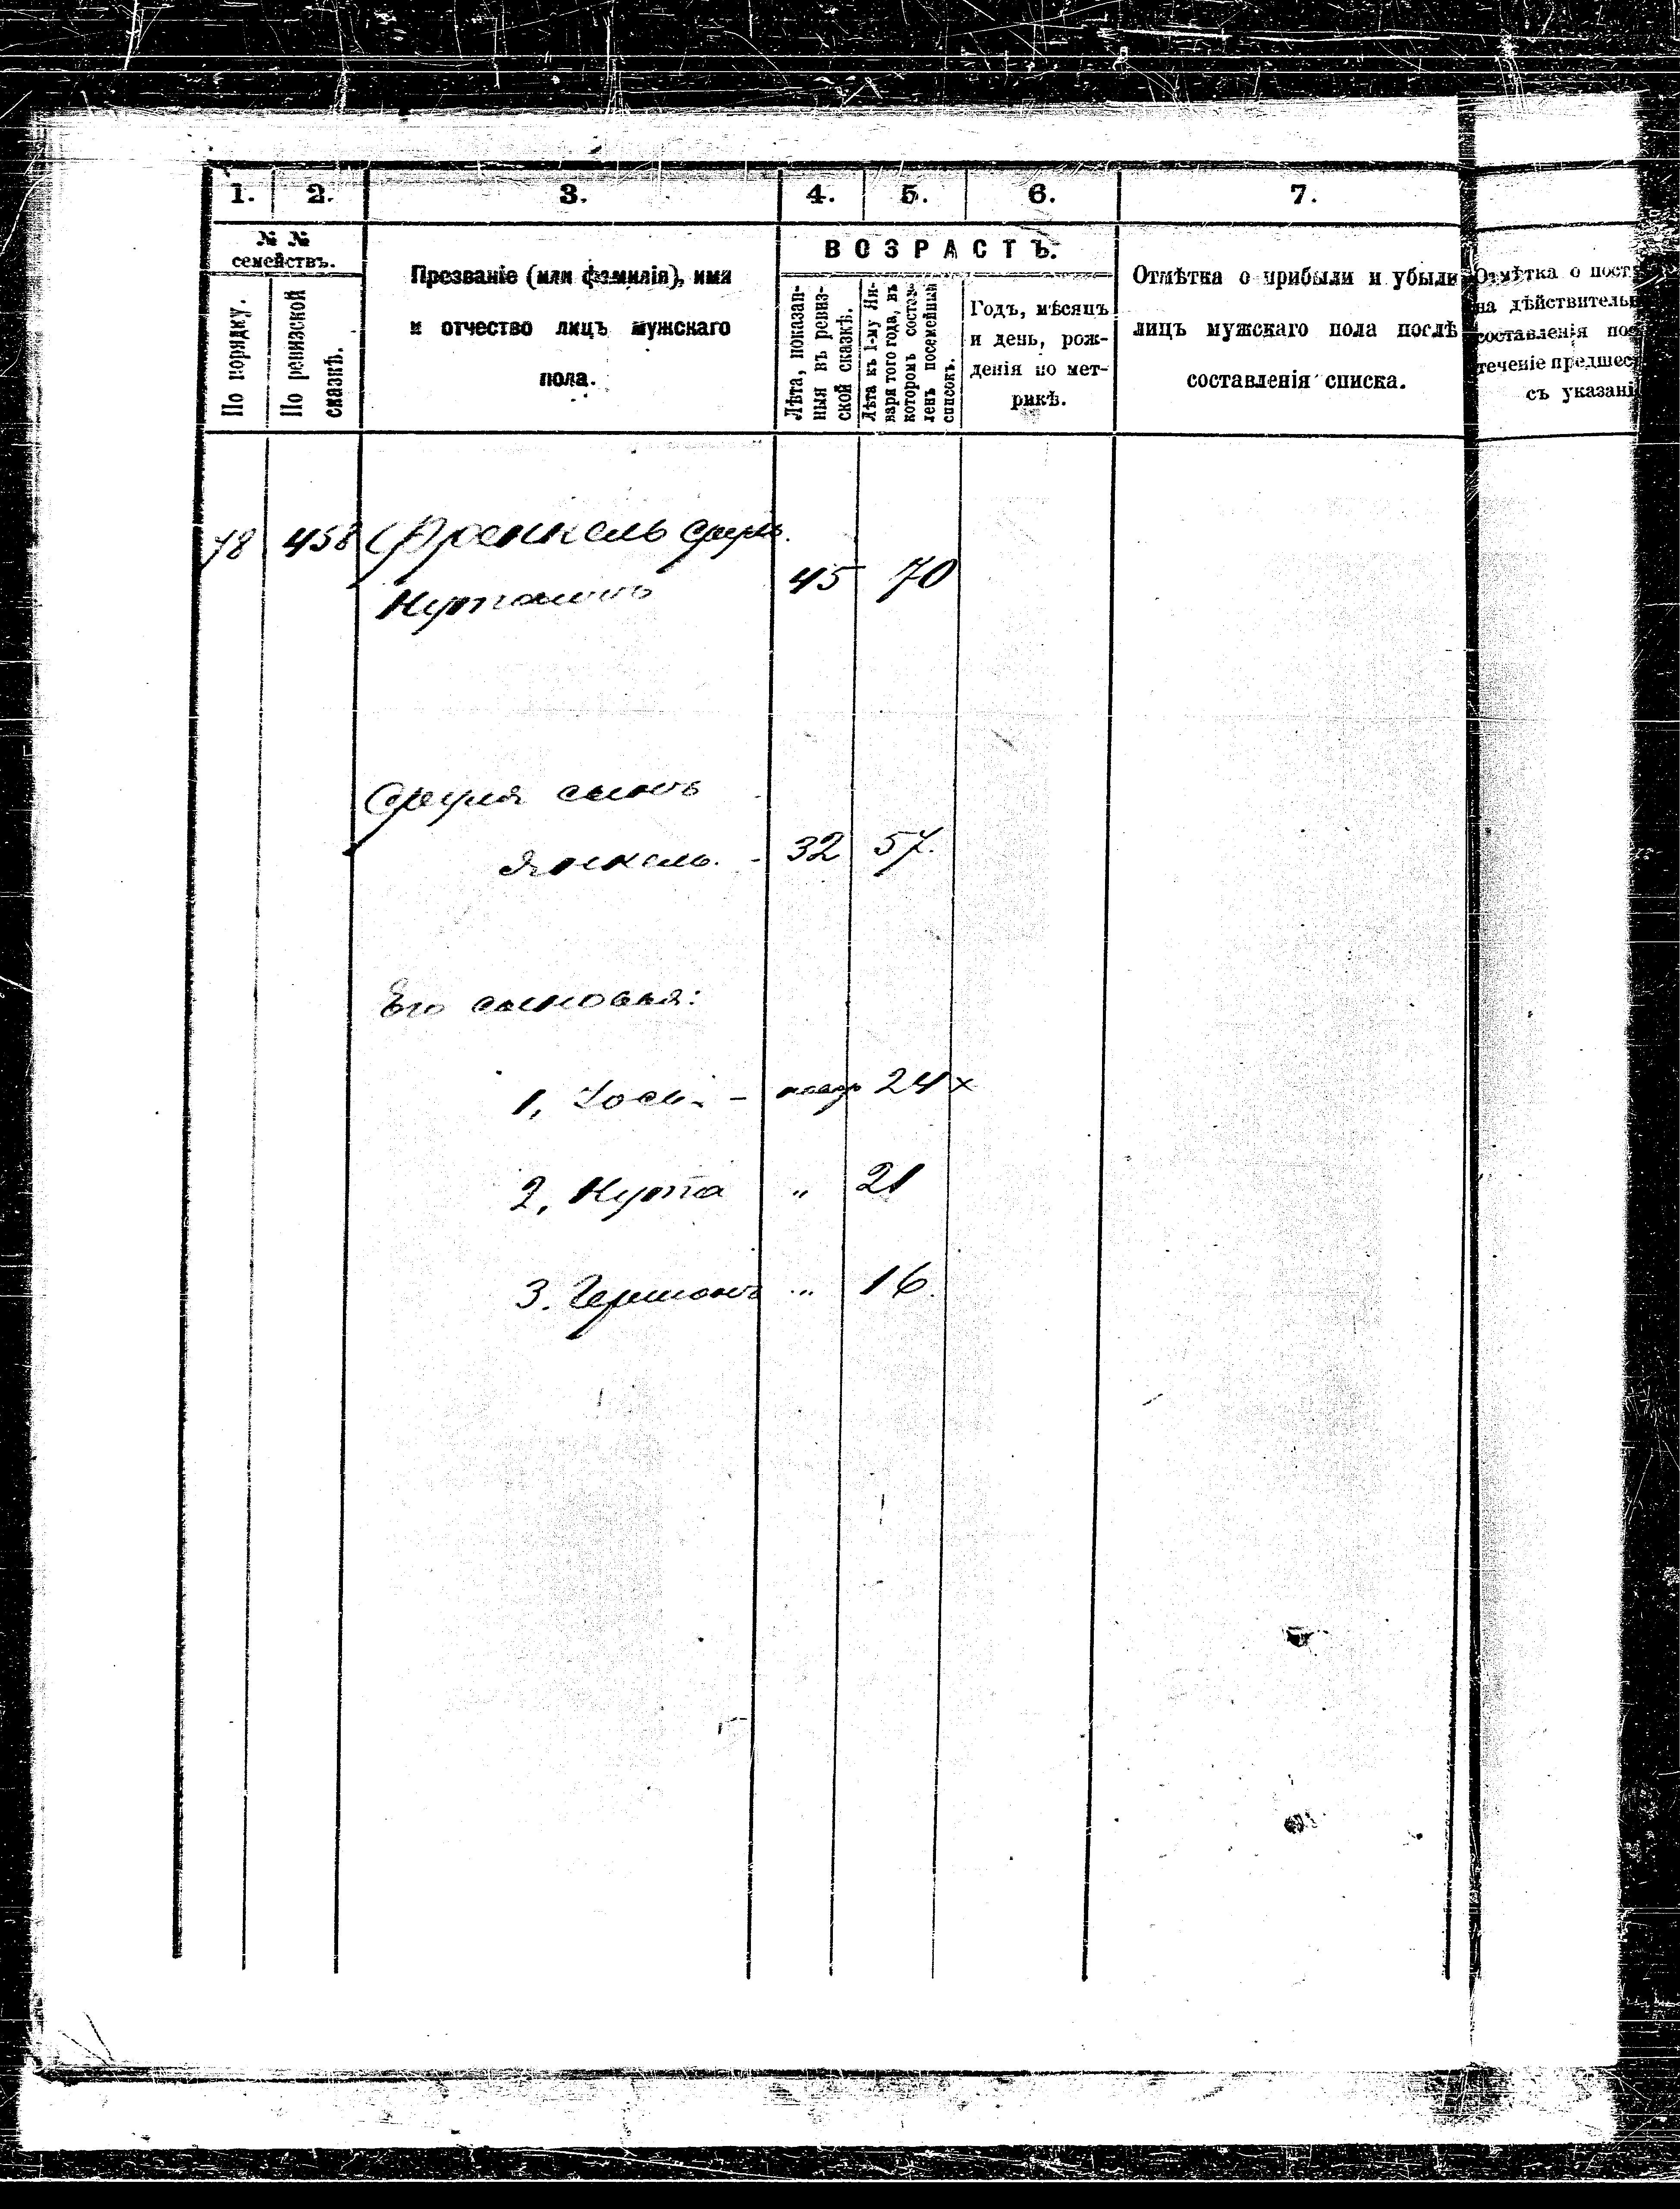 1. 2. 3. 4. 5. 6. 7.
№ №
семействъ.
По порядку.
По ревизской
сказкѣ.
Презваніе (или фамилія), имя
и отчество лицъ мужскаго
пола.
ВОЗРАСТЪ.
Лѣта, показан-
ныя въ ревиз-
ской сказкѣ.
Лѣта къ 1-му Ян-
варя того года, въ
которомъ состав-
ленъ посемейный
списокъ.
Годъ, мѣсяцъ
и день, рож-
денія по мет-
рикѣ.
Отмѣтка о прибыли и убыли
лицъ мужскаго пола послѣ
составленія списка.
Отмѣтка о пост
на дѣйствитель
составленія пос
теченіе предшес
съ указані
78 458 Френкель Сруль
Нутановъ 45 70
Сруля сынъ
Янкель. - 32 57.
Его сыновья:
1, - 24 x
2, Нута " 21
3. Гершонъ " 16.